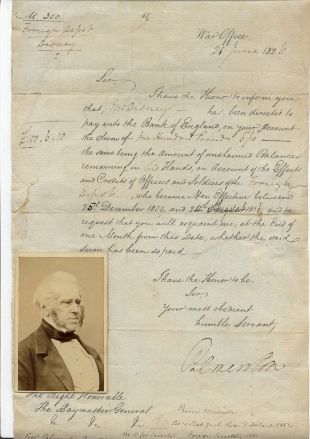 M. 300.
Foreign Depot
Disney
War Office,
2 June 1826
Sir,
I have the Honor to inform you
that, Mr Disney
has been directed to
pay into the Bank of England, on your Account
£100. 6. 10 the Sum of One Hundred Pounds 6/10
the same being the Amount of unclaimed Balances
remaining in his Hands, on Account of the Effects
and Credits of Officers and Soldiers of the Foreign
Depot, who became Non Effective between
25th December 1810 and and to
request that you will acquaint me, at the End of
one Month from this Date, whether the said
Sum has been so paid
I have the Honor to be.
Sir
Your most obedient
humble Servant,
Palmerston
The Right Honorable
The Paymaster General
&c. &c. &c.
Prime Minister